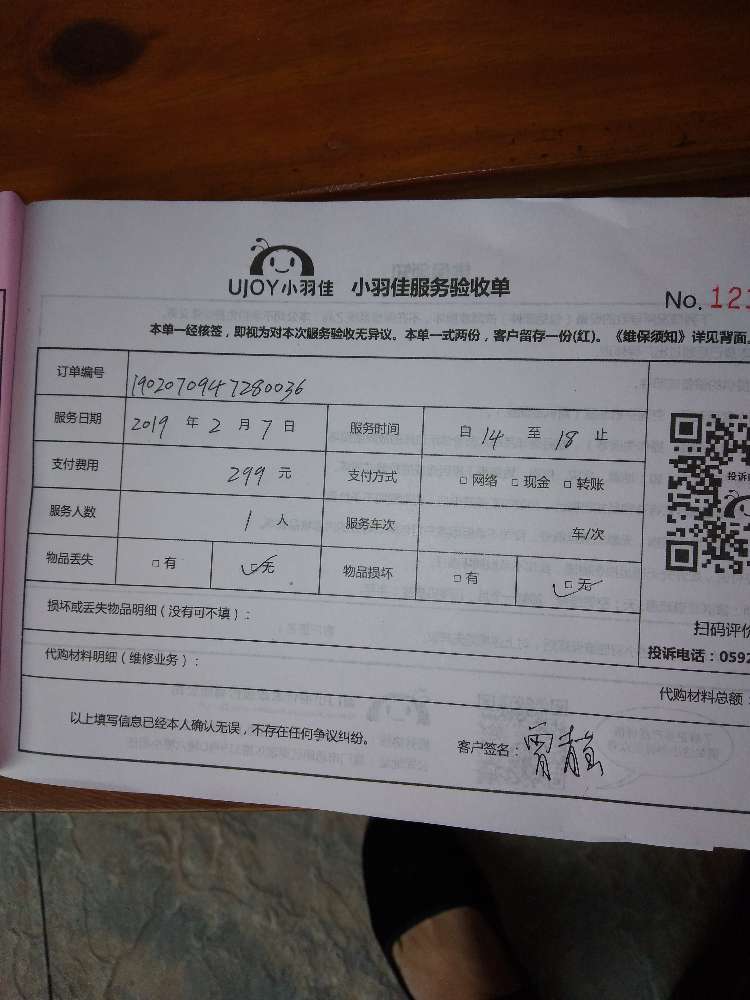 UJOY小羽佳 小羽佳服务验收单
No. 121
本单一经核签，即视为对本次服务验收无异议。本单一式两份，客户留存一份(红)。《维保须知》详见背面。
订单编号 1902070947280036
服务日期 2019 年 2 月 7 日 服务时间 自 14 至 18 止
支付费用 299 元 支付方式 □网络 □现金 □转账
服务人数 1 人 服务车次 车/次
物品丢失 □有 □无 物品损坏 □有 □无
损坏或丢失物品明细（没有可不填）：
扫码评价
代购材料明细（维修业务）：
投诉电话：0592
代购材料总额：
以上填写信息已经本人确认无误，不存在任何争议纠纷。 客户签名：